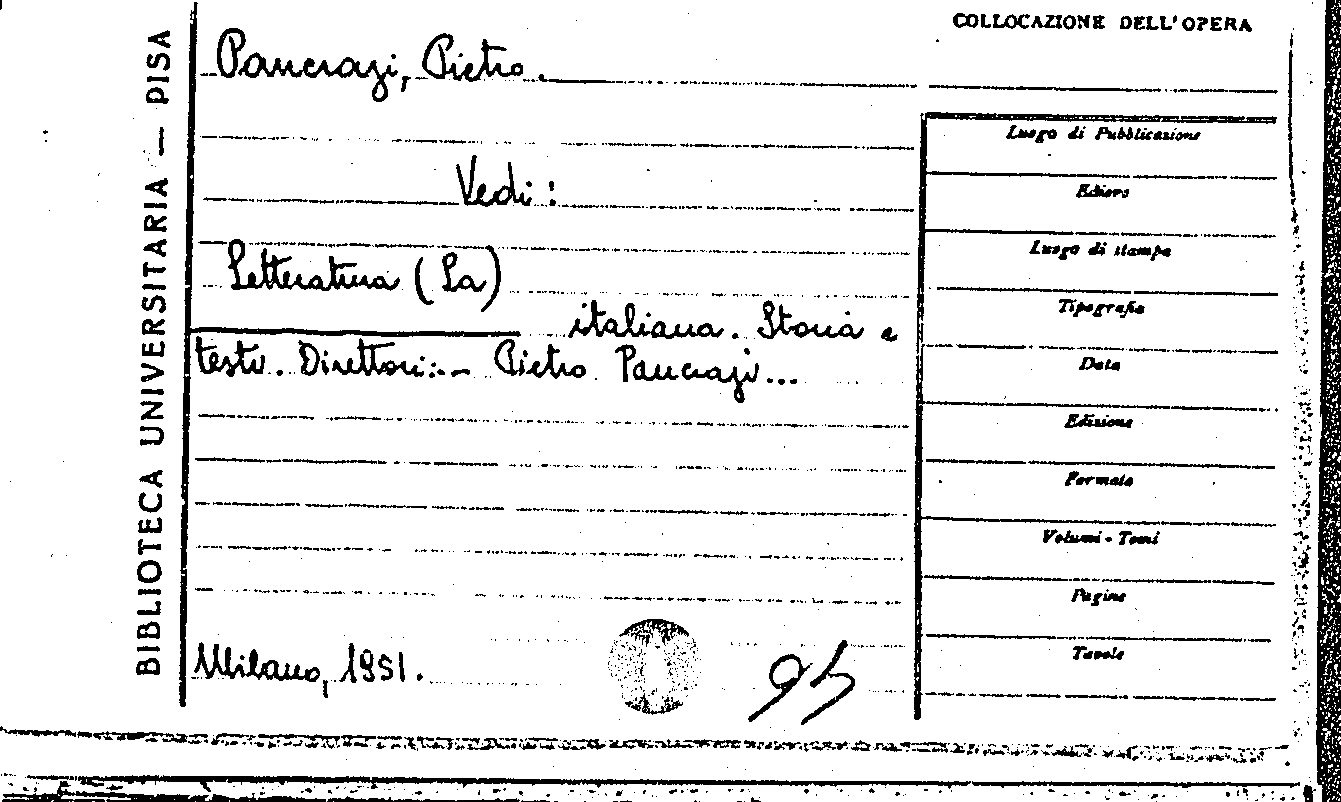 BIBLIOTECA UNIVERSITARIA — PISA
COLLOCAZIONE DELL'OPERA
Pancrazi, Pietro.
Vedi:
Letteratura (La)
italiana. Storia e
testi. Direttori:.- Pietro Pancrazi...
Milano, 1951.
95
Luogo di Pubblicazione
Editore
Luogo di stampa
Tipografia
Data
Edizione
Formato
Volumi - Tomi
Pagine
Tavole